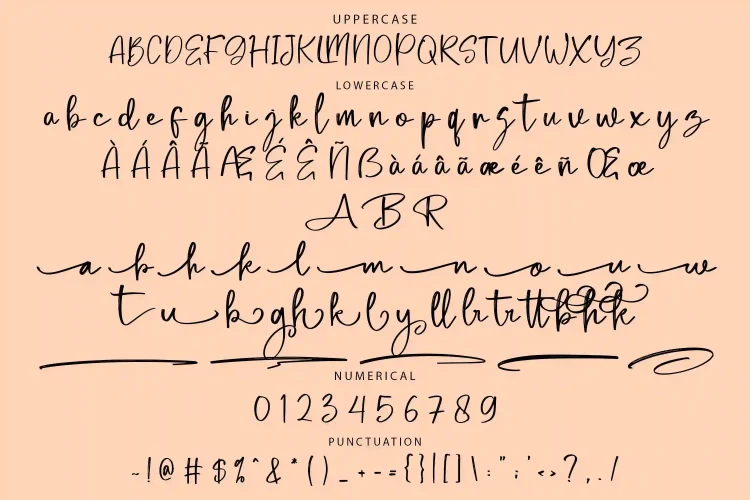 UPPERCASE
ABCDEFGHIJKLMNOPQRSTUVWXYZ
LOWERCASE
a b c d e f g h i j k l m n o p q r s t u v w x y z
À Á Â Ã Æ É Ê Ñ ß à á â ã æ é ê ñ Œ œ
A B R
a b h k l m n o u w
t u b g h k l y ll lr tr tt b h k
NUMERICAL
0 1 2 3 4 5 6 7 8 9
PUNCTUATION
~ ! @ # $ % ^ & * ( ) _ + - = { } | [ ] \ : " ; ' < > ? , . /